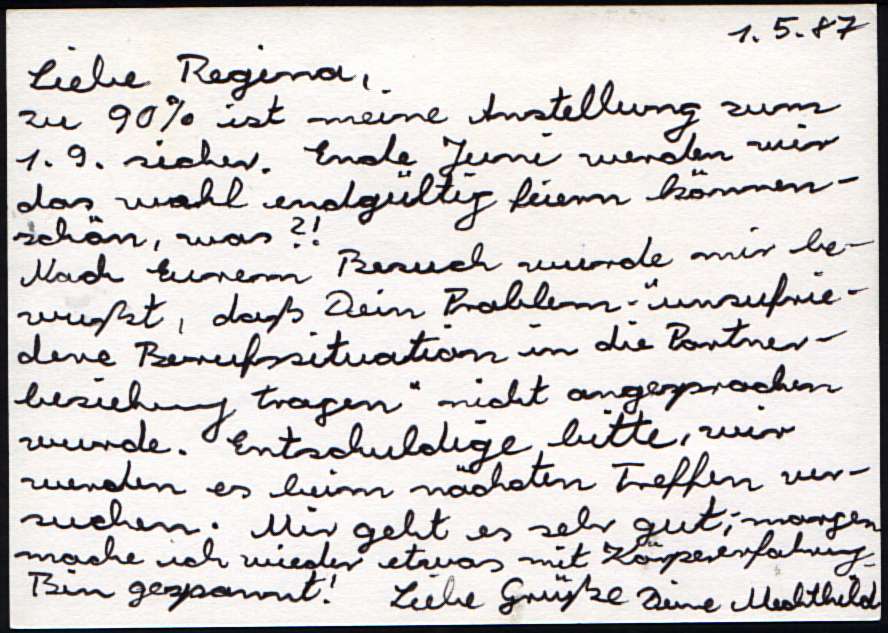 1.5.87
Liebe Regina,
zu 90% ist meine Anstellung zum
1.9. sicher. Ende Juni werden wir
das wohl endgültig feiern können-
schön, was?!
Nach Eurem Besuch wurde mir be-
wußt, daß Dein Problem - "unzufrie-
dene Berufssituation in die Partner-
beziehung tragen" nicht angesprochen
wurde. Entschuldige bitte, wir
werden es beim nächsten Treffen ver-
suchen. Mir geht es sehr gut; morgen
mache ich wieder etwas mit Körpererfahrung.
Bin gespannt! Liebe Grüße Deine Mechthild